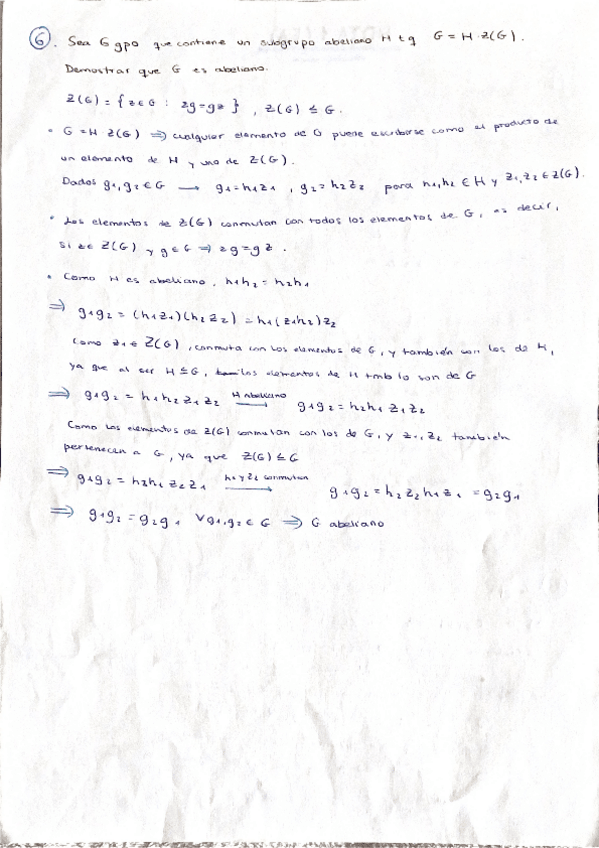 6. Sea G gpo que contiene un subgrupo abeliano H tq G = H·Z(G).
Demostrar que G es abeliano.
Z(G) = { z ∈ G : zg = gz } , Z(G) ≤ G.
· G = H Z(G) ⇒ cualquier elemento de G puede escribirse como el producto de
un elemento de H y uno de Z(G).
Dados g₁, g₂ ∈ G → g₁ = h₁z₁ , g₂ = h₂z₂ para h₁, h₂ ∈ H y z₁, z₂ ∈ Z(G).
· Los elementos de Z(G) conmutan con todos los elementos de G, es decir,
si z ∈ Z(G) y g ∈ G ⇒ zg = gz .
· Como H es abeliano, h₁h₂ = h₂h₁
⇒ g₁g₂ = (h₁z₁)(h₂z₂) = h₁(z₁h₂)z₂
Como z₁ ∈ Z(G), conmuta con los elementos de G, y también con los de H,
ya que al ser H ≤ G, los elementos de H tmb lo son de G
⇒ g₁g₂ = h₁h₂ z₁z₂ H abeliano → g₁g₂ = h₂h₁ z₁z₂
Como los elementos de Z(G) conmutan con los de G, y z₁, z₂ también
pertenecen a G, ya que Z(G) ≤ G
⇒ g₁g₂ = h₂h₁ z₂z₁ h₁ y z₂ conmutan → g₁g₂ = h₂z₂h₁z₁ = g₂g₁
⇒ g₁g₂ = g₂g₁ ∀g₁,g₂ ∈ G ⇒ G abeliano